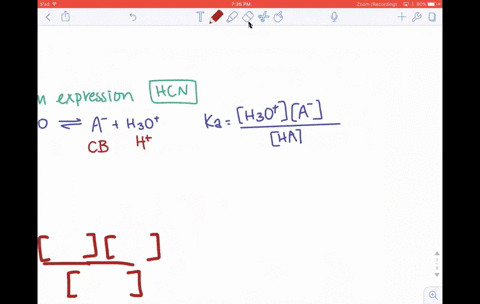 iPad 7:26 PM Zoom (Recording) 80%
n expression HCN
O ⇌ A⁻ + H₃O⁺ Ka = [H₃O⁺][A⁻] / [HA]
CB H⁺
[ ][ ]
[ ]